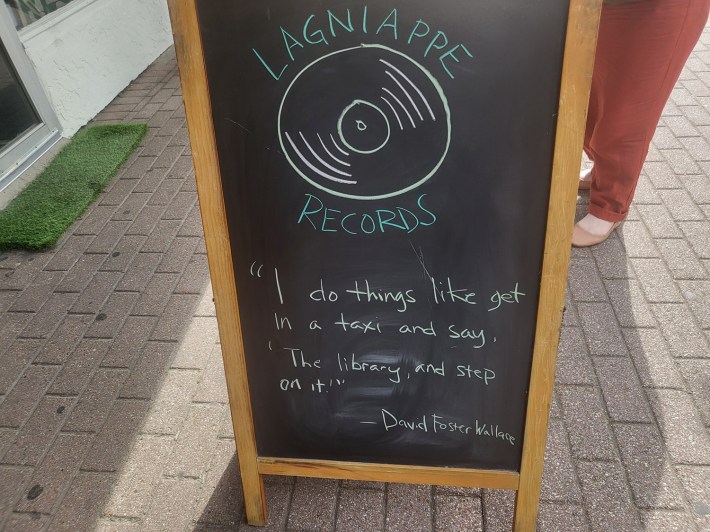 LAGNIAPPE
RECORDS
"I do things like get
In a taxi and say,
'The library, and step
on it.'"
—David Foster Wallace